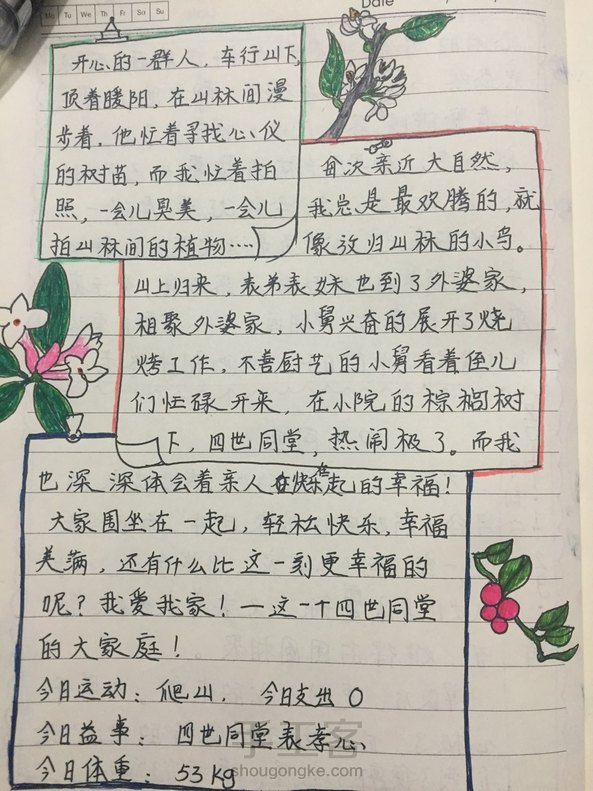 Mo Tu We Th Fr Sa Su
Date
开心的一群人，车行山下，
顶着暖阳，在山林间漫
步着，他忙着寻找心仪
的树苗，而我忙着拍
照，一会儿臭美，一会儿
拍山林间的植物····
每次亲近大自然，
我总是最欢腾的，就
像放归山林的小鸟。
山上归来，表弟表妹也到了外婆家，
相聚外婆家，小舅兴奋的展开了烧
烤工作，不善厨艺的小舅看着侄儿
们忙碌开来，在小院的棕榈树
下，四世同堂，热闹极了。而我
也深深体会着亲人在一起的幸福！
大家围坐在一起，轻松快乐，幸福
美满，还有什么比这一刻更幸福的
呢？我爱我家！—这一个四世同堂
的大家庭！
今日运动：爬山． 今日支出 0
今日益事：四世同堂表孝心、
今日体重：53kg
手工客
shougongke.com